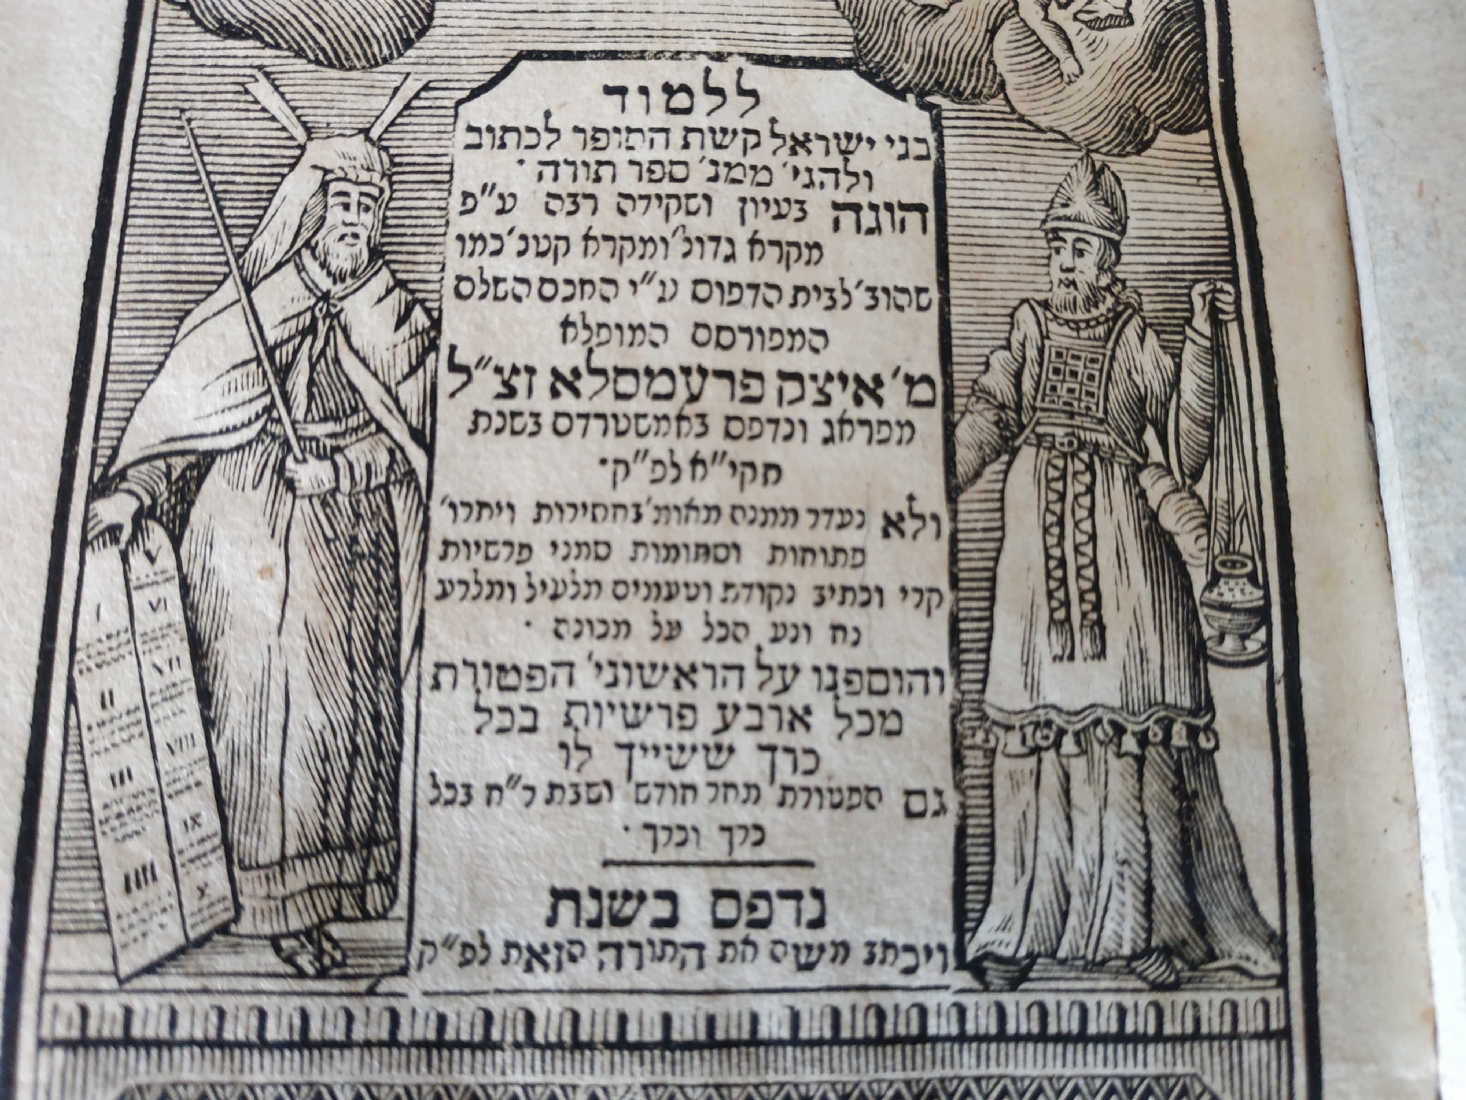 ללמוד
בני ישראל קשת הסופר לכתוב
ולהגי׳ ממנ׳ ספר תורה ·
הוגה בעיון ושקידה רבה ע״פ
מקרא גדול׳ ומקרא קטנ׳ כמו
שהוב׳ לבית הדפוס ע״י החכם השלם
המפורסם המופלא
מ׳ איצק פרעמסלא זצ״ל
מפראג ונדפס באמשטרדם בשנת
תקי״א לפ״ק ·
ולא נעדר ממנה מאות׳ בחסירות ויתרו׳
פתוחות וסתומות סמני פרשיות
קרי וכתיב נקודת וטעמים מלעיל ומלרע
נח ונע הכל על מכונה ·
והוספנו על הראשוני׳ הפטורת
מכל ארבע פרשיות בכל
כרך ששייך לו
גם הפטורת׳ מחר חודש׳ ושבת ר״ח בכל
כרך וכרך ·
נדפס בשנת
ויכתב משה את התורה הזאת לפ״ק
I
II
III
IIII
V
VI
VII
VIII
IX
X